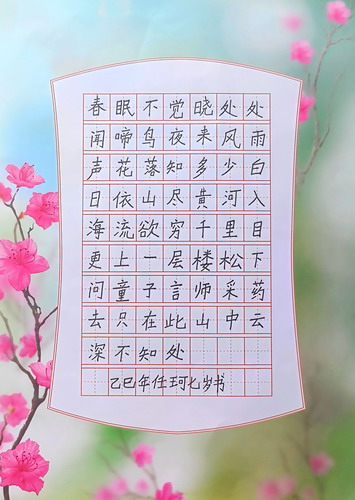 春眠不觉晓处处
闻啼鸟夜来风雨
声花落知多少白
日依山尽黄河入
海流欲穷千里目
更上一层楼松下
问童子言师采药
去只在此山中云
深不知处
乙巳年任珂七岁书